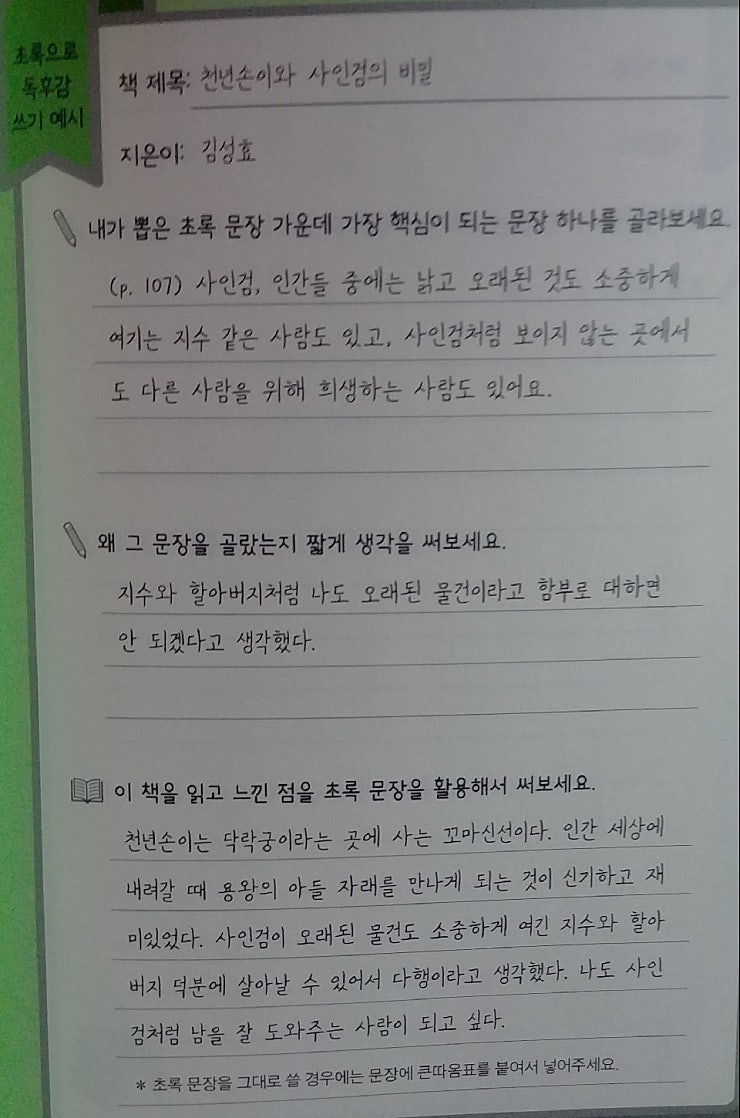 초록으로
독후감
쓰기 예시
책 제목: 천년손이와 사인검의 비밀
지은이: 김성효
내가 뽑은 초록 문장 가운데 가장 핵심이 되는 문장 하나를 골라보세요.
(p. 107) 사인검, 인간들 중에는 낡고 오래된 것도 소중하게
여기는 지수 같은 사람도 있고, 사인검처럼 보이지 않는 곳에서
도 다른 사람을 위해 희생하는 사람도 있어요.
왜 그 문장을 골랐는지 짧게 생각을 써보세요.
지수와 할아버지처럼 나도 오래된 물건이라고 함부로 대하면
안 되겠다고 생각했다.
이 책을 읽고 느낀 점을 초록 문장을 활용해서 써보세요.
천년손이는 닥락궁이라는 곳에 사는 꼬마신선이다. 인간 세상에
내려갈 때 용왕의 아들 자래를 만나게 되는 것이 신기하고 재
미있었다. 사인검이 오래된 물건도 소중하게 여긴 지수와 할아
버지 덕분에 살아날 수 있어서 다행이라고 생각했다. 나도 사인
검처럼 남을 잘 도와주는 사람이 되고 싶다.
* 초록 문장을 그대로 쓸 경우에는 문장에 큰따옴표를 붙여서 넣어주세요.